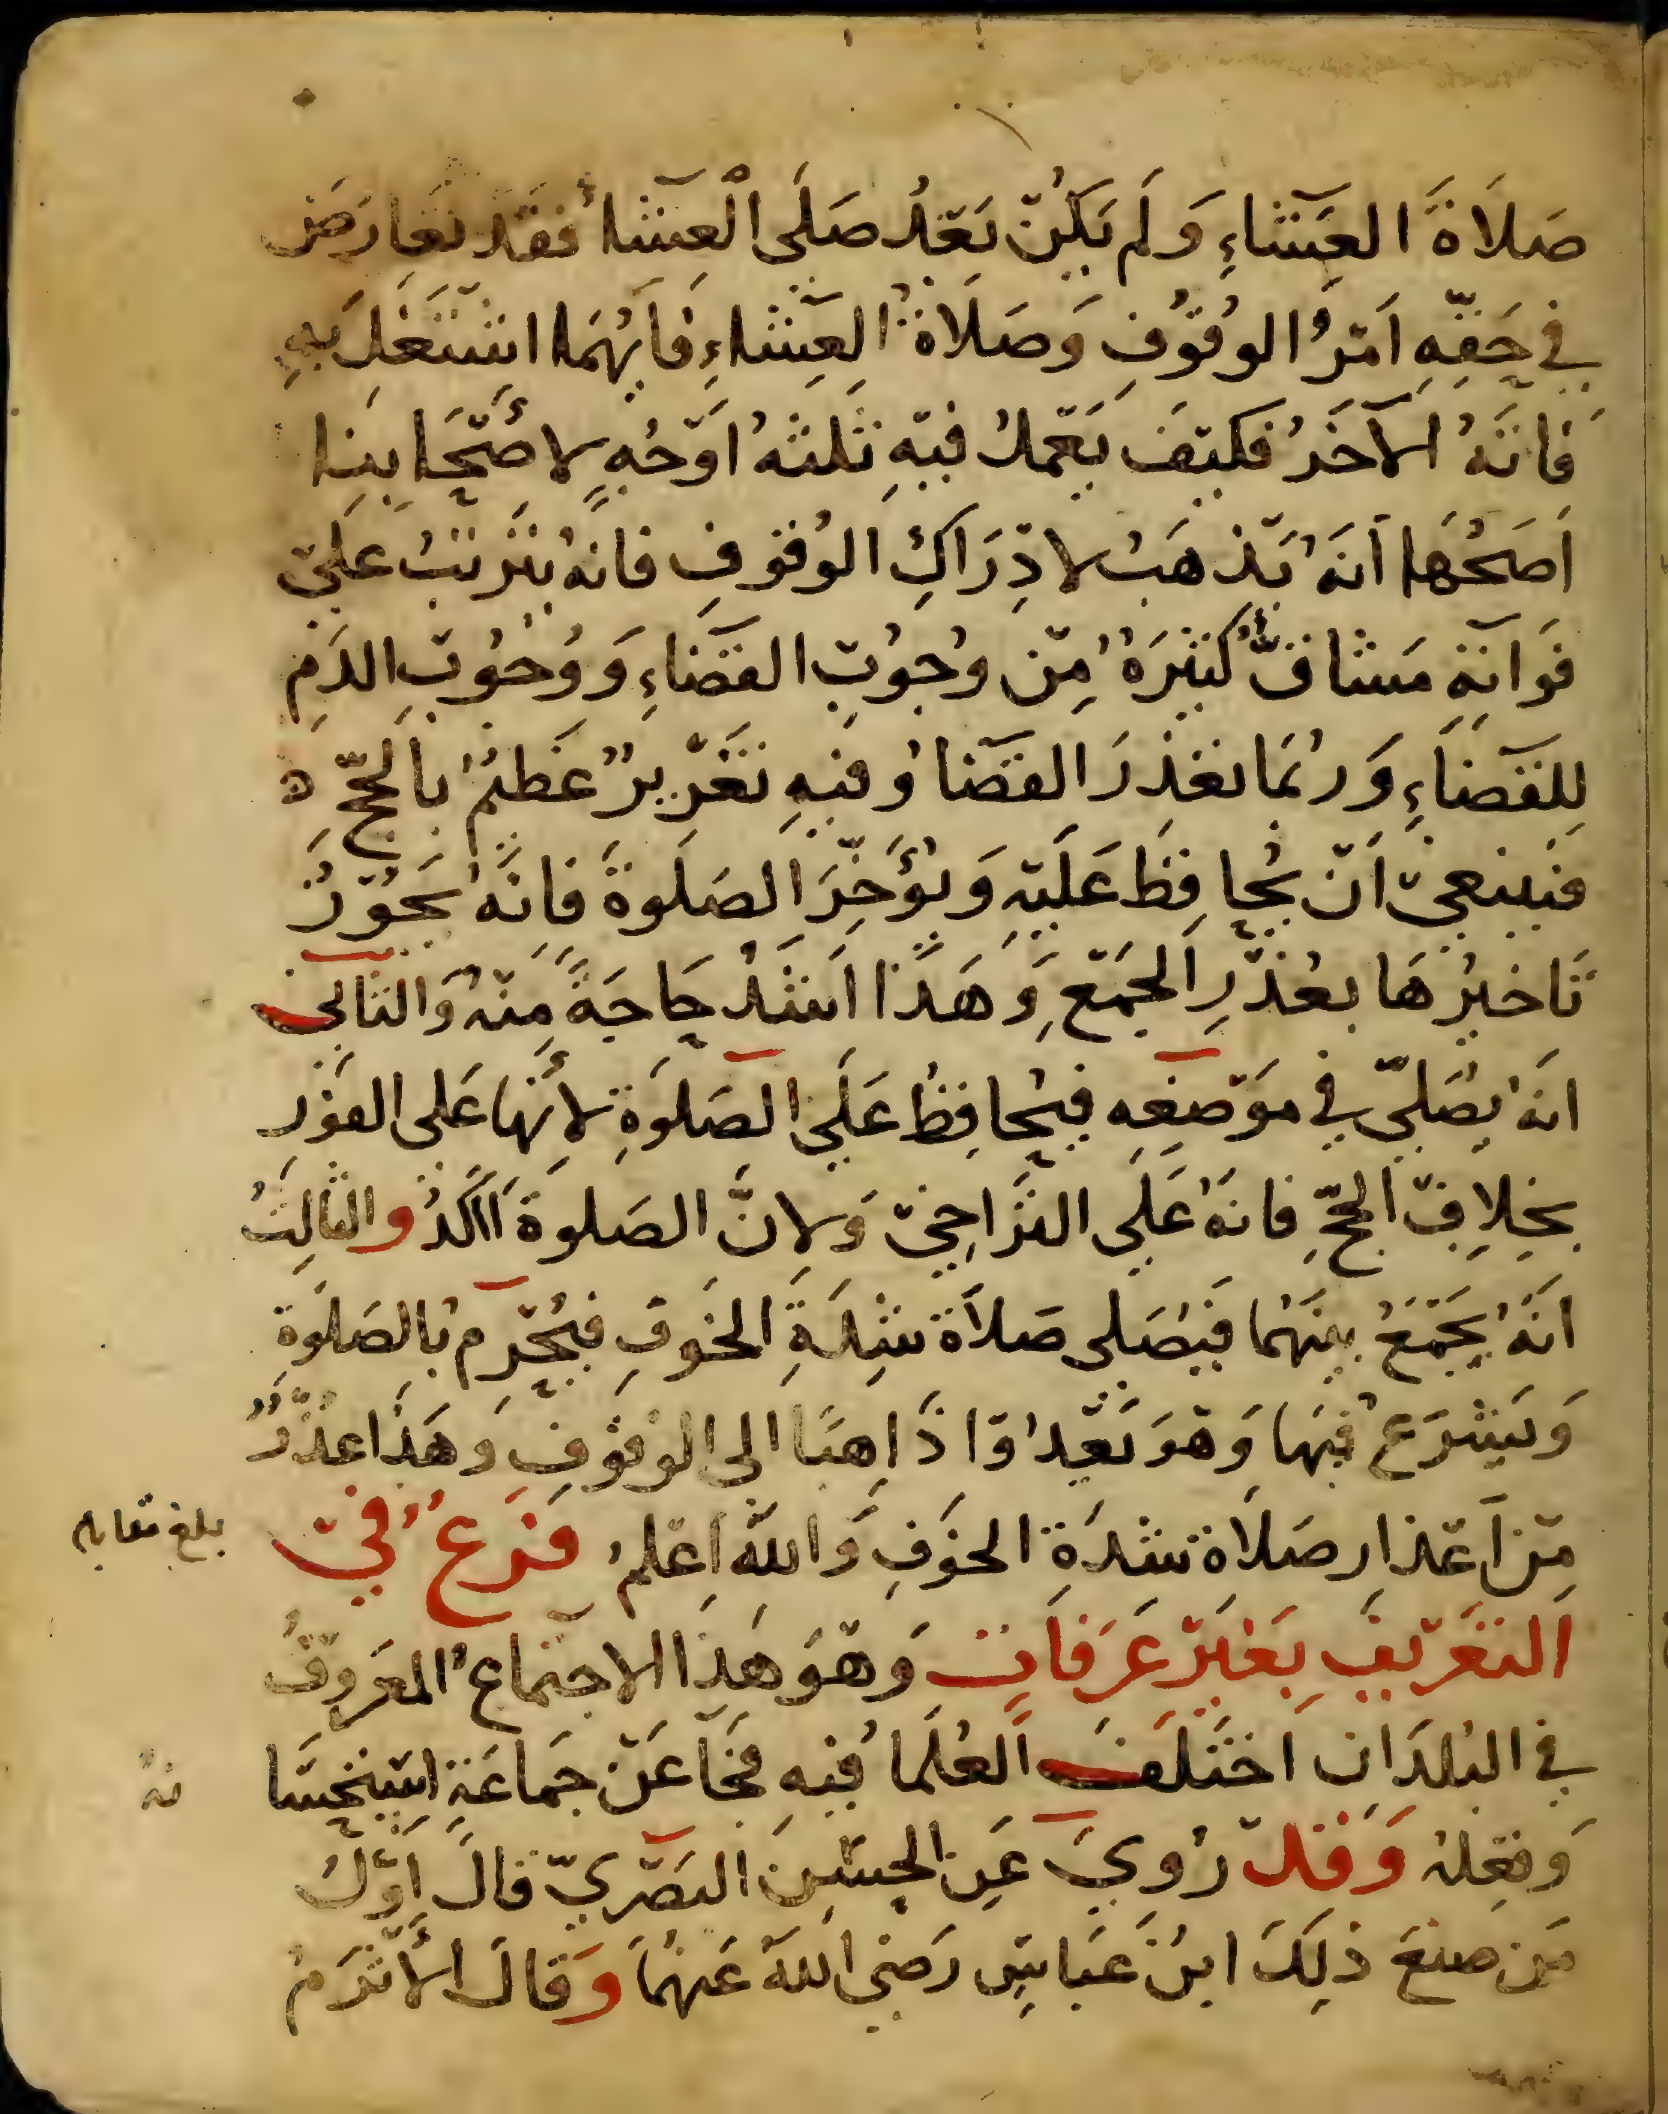 صَلَاةَ العِشَاءِ وَلَم يَكُنْ بَعْدُ صَلَّى الْعِشَاءَ فَقَد تَعَارَضَ
في حَقِّهِ اَمْرُ الوُقُوفِ وَصَلَاةُ العِشَاءِ فَاَيُّهُمَا اشْتَغَلَ بِهِ
فَاتَهُ الآخَرُ فَكَيْفَ يَعْمَلُ فيْهِ ثَلثَهُ اَوْجُهٍ لاَصْحَابِنَا
اَصَحُّهَا اَنَّهُ يَذْهَبُ لاِدْرَاكِ الوُقوْفِ فانهُ يَتَرَتَّبُ عَليْ
فَوَاتِهِ مَشَاقٌّ كَثِيْرَةٌ مِنْ وُجُوبْ القَضَاءِ وَوُجُوبْ الدَمِ
لِلقَضَاءِ وَربُمَا تعَذرَ القَضَاُ وَفيهِ تَغْرِيرٌ عَظيمٌ بالحَجِّ ه
فيَنبَغيْ اَنْ يُحافِظَ عَلَيْهِ وَيُؤَخِّرَ الصَلَوةَ فَانَّهُ يَجُوْزُ
تَاخيرُهَا بعُذْرِ الجَمْعِ وَهَذَا اَشَدُّ حَاجَةً مِنهُ وَالثاني
انهُ يُصَليّ في مَوْضِعِه فيُحافِظُ عَلَي الصَلوَةِ لاَنها عَلى الفَوْرِ
بخِلافِ الحَجِّ فانهُ عَلَي التَرَاخِيْ وَلاِنَّ الصَلوةَ آكَدُ والثالِثُ
انَّهُ يَجْمَعُ بينَهُمَا فَيُصَلى صَلاَة شِدَةِ الخَوفِ فيُحْرِمُ بالصَلَوَةِ
وَيَشْرَعُ فيهَا وَهوَ يَعْدُوْا ذَاهِبًا الى الوُقوُفِ وَهَذَا عُذْرٌ
مِنْ اَعْذارِ صَلَاة شدَةِ الخوَفِ وَاللهُ اَعْلمُ فَرْعٌ فيْ
التَعْرِيْفِ بغَيْرِ عَرَفَات وَهْوَ هَذَا الاجتِمَاعُ المَعْروُفُ
في البُلدَان اخْتَلَفَ العُلَمَاُ فيهِ فَجَآ عَنْ جَمَاعَةٍ اسْتِحْسَا
نهُ
وَفِعْلهُ وَقَدْ رُوِيَ عَن الحَسَنِ البَصْرِيّ قالَ اَوَّلُ
مَن صَنعَ ذلِكَ ابنُ عَبَاسٍ رَضيَ اللهُ عَنهُمَا وَقَالَ الاَثْرَمُ
بلغ مقابله